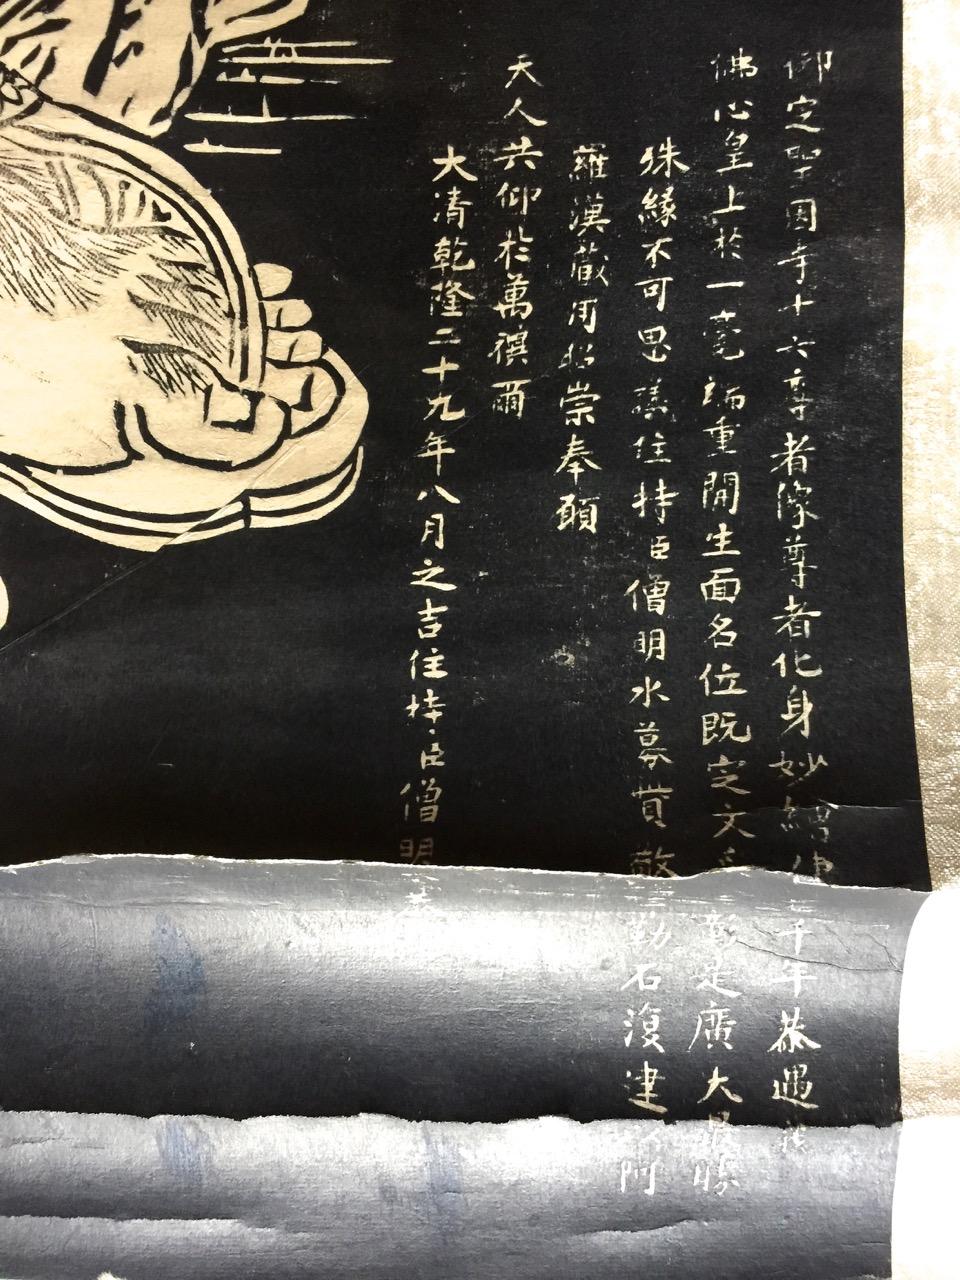 御定聖因寺十六尊者像尊者化身妙繪千年恭遇
佛心皇上於一毫端重開生面名位既定文彰是廣大最勝
殊緣不可思議住持臣僧明水募貲敬勒石復建阿
羅漢藏用昭崇奉願
天人共仰於萬禩爾
大清乾隆二十九年八月之吉住持臣僧明